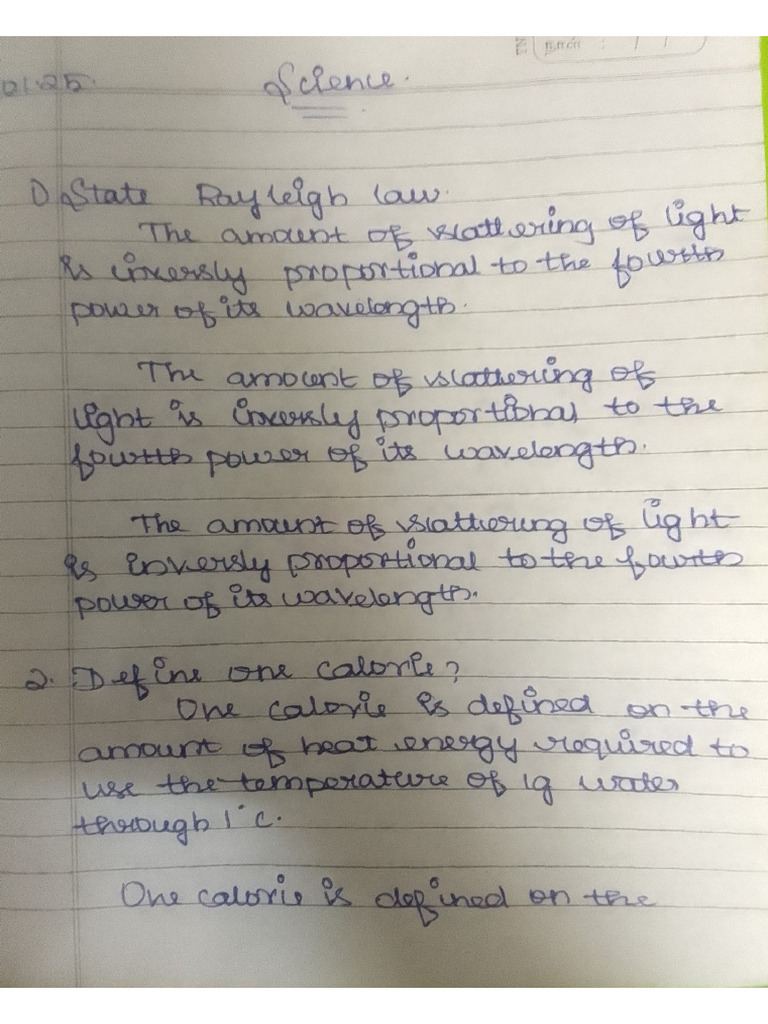 01.25.
Science.
1) State Rayleigh law.
The amount of scattering of light
is inversly proportional to the fourth
power of its wavelength.
The amount of scattering of
light is inversly proportional to the
fourth power of its wavelength.
The amount of scattering of light
is inversly proportional to the fourth
power of its wavelength.
2. Define one calorie?
One calorie is defined on the
amount of heat energy required to
use the temperature of 1g water
through 1°c.
One calorie is defined on the